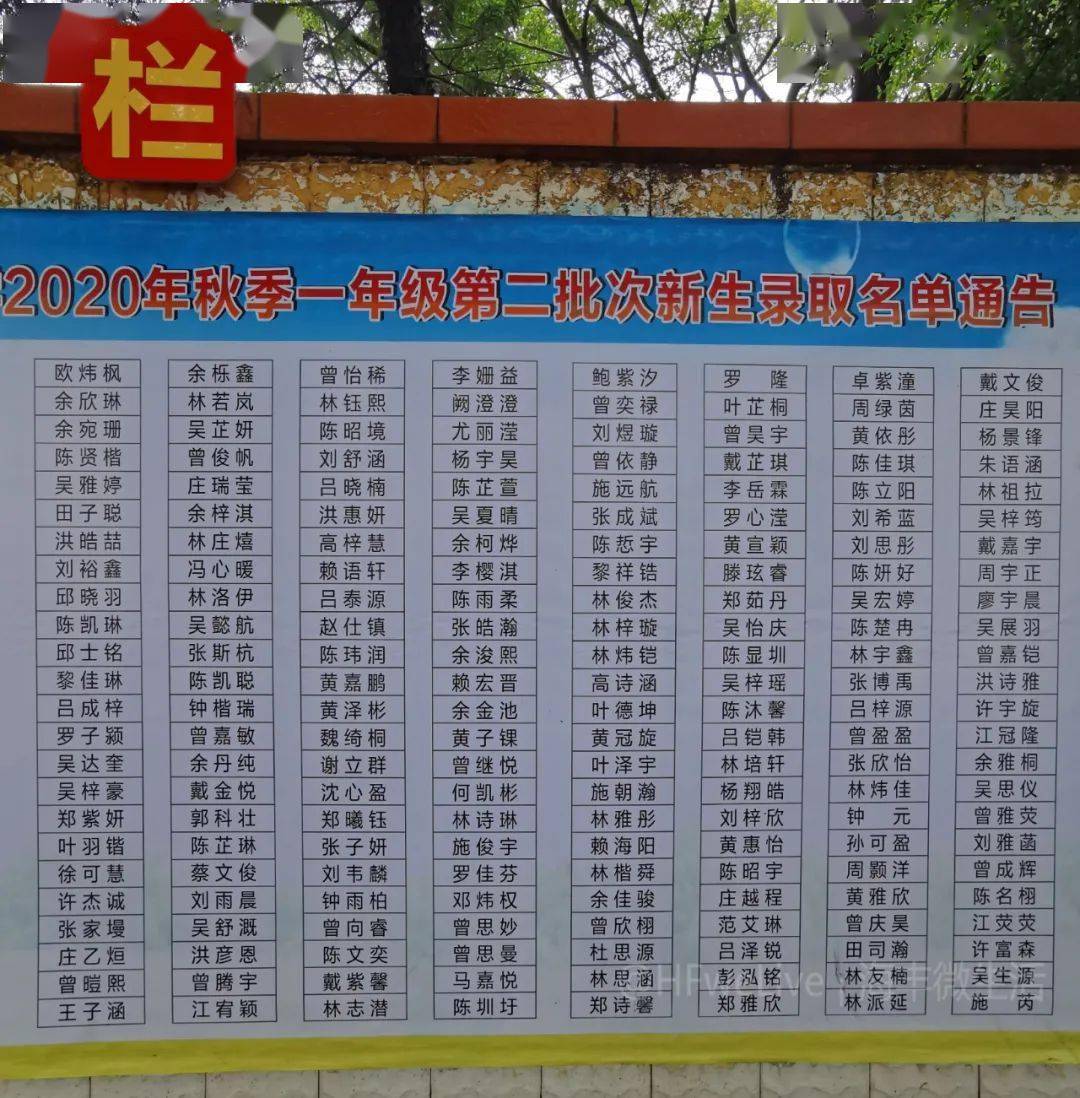 栏
2020年秋季一年级第二批次新生录取名单通告
欧炜枫 余栎鑫 曾怡稀 李姗益 鲍紫汐 罗隆 卓紫潼 戴文俊
余欣琳 林若岚 林钰熙 阙澄澄 曾奕禄 叶芷桐 周绿茵 庄昊阳
余宛珊 吴芷妍 陈昭境 尤丽滢 刘煜璇 曾昊宇 黄依彤 杨景锋
陈贤楷 曾俊帆 刘舒涵 杨宇昊 曾依静 戴芷琪 陈佳琪 朱语涵
吴雅婷 庄瑞莹 吕晓楠 陈芷萱 施远航 李岳霖 陈立阳 林祖拉
田子聪 余梓淇 洪惠妍 吴夏晴 张成斌 罗心滢 刘希蓝 吴梓筠
洪皓喆 林庄熺 高梓慧 余柯烨 陈悊宇 黄宣颖 刘思彤 戴嘉宇
刘裕鑫 冯心暖 赖语轩 李樱淇 黎祥锆 滕玹睿 陈妍好 周宇正
邱晓羽 林洛伊 吕泰源 陈雨柔 林俊杰 郑茹丹 吴宏婷 廖宇晨
陈凯琳 吴懿航 赵仕镇 张皓瀚 林梓璇 吴怡庆 陈楚冉 吴展羽
邱士铭 张斯杭 陈玮润 余浚熙 林炜铠 陈显圳 林宇鑫 曾嘉铠
黎佳琳 陈凯聪 黄嘉鹏 赖宏晋 高诗涵 吴梓瑶 张博禹 洪诗雅
吕成梓 钟楷瑞 黄泽彬 余金池 叶德坤 陈沐馨 吕梓源 许宇旋
罗子颍 曾嘉敏 魏绮桐 黄子锞 黄冠旋 吕铠韩 曾盈盈 江冠隆
吴达奎 余丹纯 谢立群 曾继悦 叶泽宇 林培轩 张欣怡 余雅桐
吴梓豪 戴金悦 沈心盈 何凯彬 施朝瀚 杨翔皓 林炜佳 吴思仪
郑紫妍 郭科壮 郑曦钰 林诗琳 林雅彤 刘梓欣 钟元 曾雅荧
叶羽锴 陈芷琳 张子妍 施俊宇 赖海阳 黄惠怡 孙可盈 刘雅菡
徐可慧 蔡文俊 刘韦麟 罗佳芬 林楷舜 陈昭宇 周颢洋 曾成辉
许杰诚 刘雨晨 钟雨柏 邓炜权 余佳骏 庄越程 黄雅欣 陈名栩
张家墁 吴舒溉 曾向睿 曾思妙 曾欣栩 范艾琳 曾庆昊 江荧荧
庄乙烜 洪彦恩 陈文奕 曾思曼 杜思源 吕泽锐 田司瀚 许富森
曾暟熙 曾腾宇 戴紫馨 马嘉悦 林思涵 彭泓铭 林友楠 吴生源
王子涵 江宥颖 林志潜 陈圳圩 郑诗馨 郑雅欣 林派延 施芮